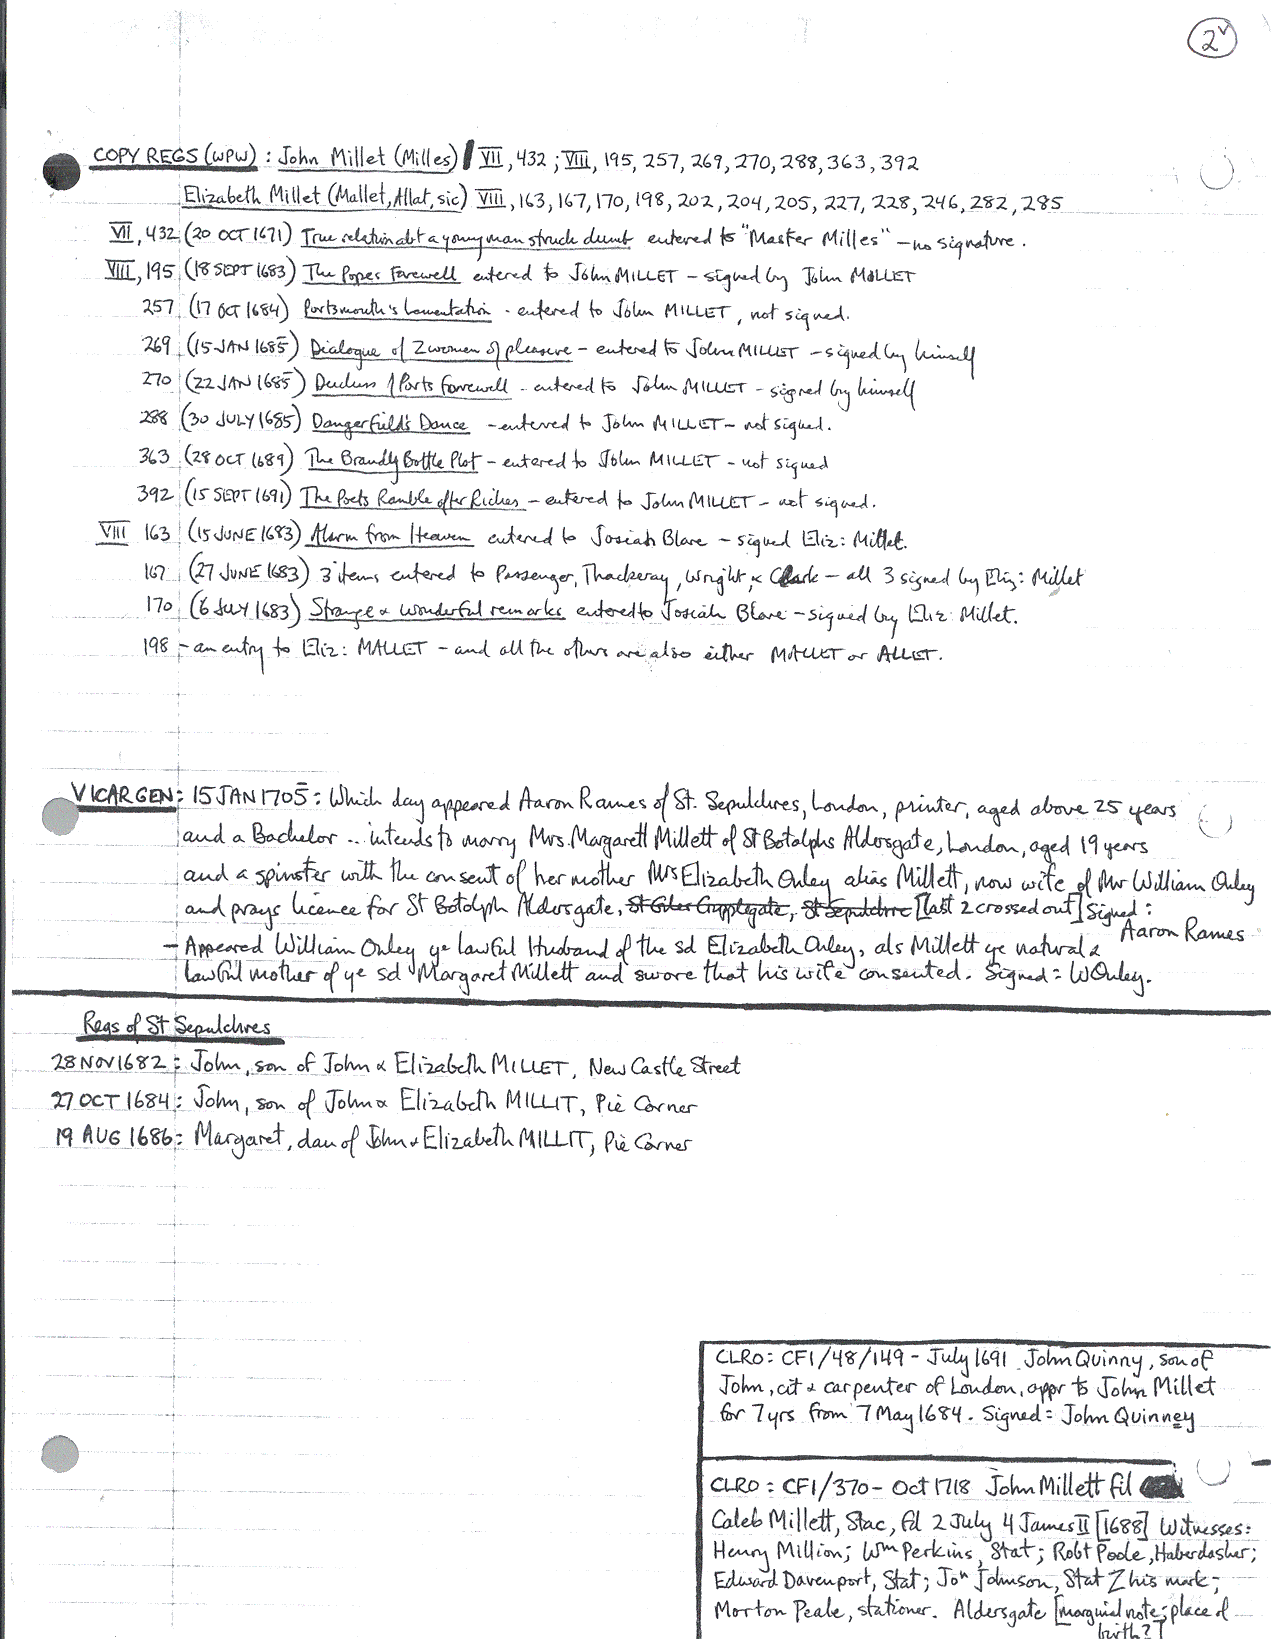 2v
COPY REGS (WPW) : John Millet (Milles) VII, 432 ; VIII, 195, 257, 269, 270, 288, 363, 392
Elizabeth Millet (Mallet, Allat, sic) VIII, 163, 167, 170, 198, 202, 204, 205, 227, 228, 246, 282, 285
VII, 432 (20 OCT 1671) True relation abt a young man struck dumb entered to "Master Milles" – no signature.
VIII, 195 (18 SEPT 1683) The Popes Farewell entered to John MILLET – signed by John MALLET
257 (17 OCT 1684) Portsmouth's Lamentation - entered to John MILLET, not signed.
269 (15 JAN 1685) Dialogue of 2 women of pleasure – entered to John MILLET – signed by himself
270 (22 JAN 1685) Duchess of Ports Farewell - entered to John MILLET – signed by himself
288 (30 JULY 1685) Dangerfield's Dance – entered to John MILLET – not signed.
363 (28 OCT 1689) The Brandy Bottle Plot – entered to John MILLET – not signed
392 (15 SEPT 1691) The Poets Ramble after Riches – entered to John MILLET – not signed.
VIII 163 (15 JUNE 1683) Alarm from Heaven entered to Josiah Blare – signed Eliz: Millet.
167 (27 JUNE 1683) 3 items entered to Passenger, Thackeray, Wright, & Clark – all 3 signed by Eliz: Millet
170 (6 JULY 1683) Strange & wonderful remarks entered to Josiah Blare – signed by Eliz: Millet.
198 – an entry to Eliz: MALLET – and all the others are also either MALLET or ALLET.
VICAR GEN: 15 JAN 1705 : Which day appeared Aaron Rames of St. Sepulchres, London, printer, aged above 25 years
and a Bachelor .. intends to marry Mrs. Margarett Millett of St Botolphs Aldersgate, London, aged 19 years
and a spinster with the consent of her mother Mrs Elizabeth Onley alias Millett, now wife of Mr William Onley
and prays licence for St Botolph Aldersgate, St Giles Cripplegate, St Sepulchre [last 2 crossed out] Signed :
Aaron Rames
– Appeared William Onley ye lawful Husband of the sd Elizabeth Onley, als Millett ye natural &
lawful mother of ye sd Margaret Millett and swore that his wife consented. Signed : W Onley.
Regs of St Sepulchres
28 NOV 1682 : John, son of John & Elizabeth MILLET, New Castle Street
27 OCT 1684 : John, son of John & Elizabeth MILLIT, Pie Corner
19 AUG 1686 : Margaret, dau of John & Elizabeth MILLIT, Pie Corner
CLRO : CF1/48/149 – July 1691 John Quinny, son of
John, cit & carpenter of London, appr to John Millet
for 7 yrs from 7 May 1684. Signed : John Quinney
CLRO : CF1/370 – Oct 1718 John Millett fil
Caleb Millett, Stac, fd 2 July 4 James II [1688] Witnesses :
Henry Million; Wm Perkins, Stat; Robt Poole, Haberdasher;
Edward Davenport, Stat; Jon Johnson, Stat Z his mark;
Morton Peale, stationer. Aldersgate [marginal note; place of
birth?]